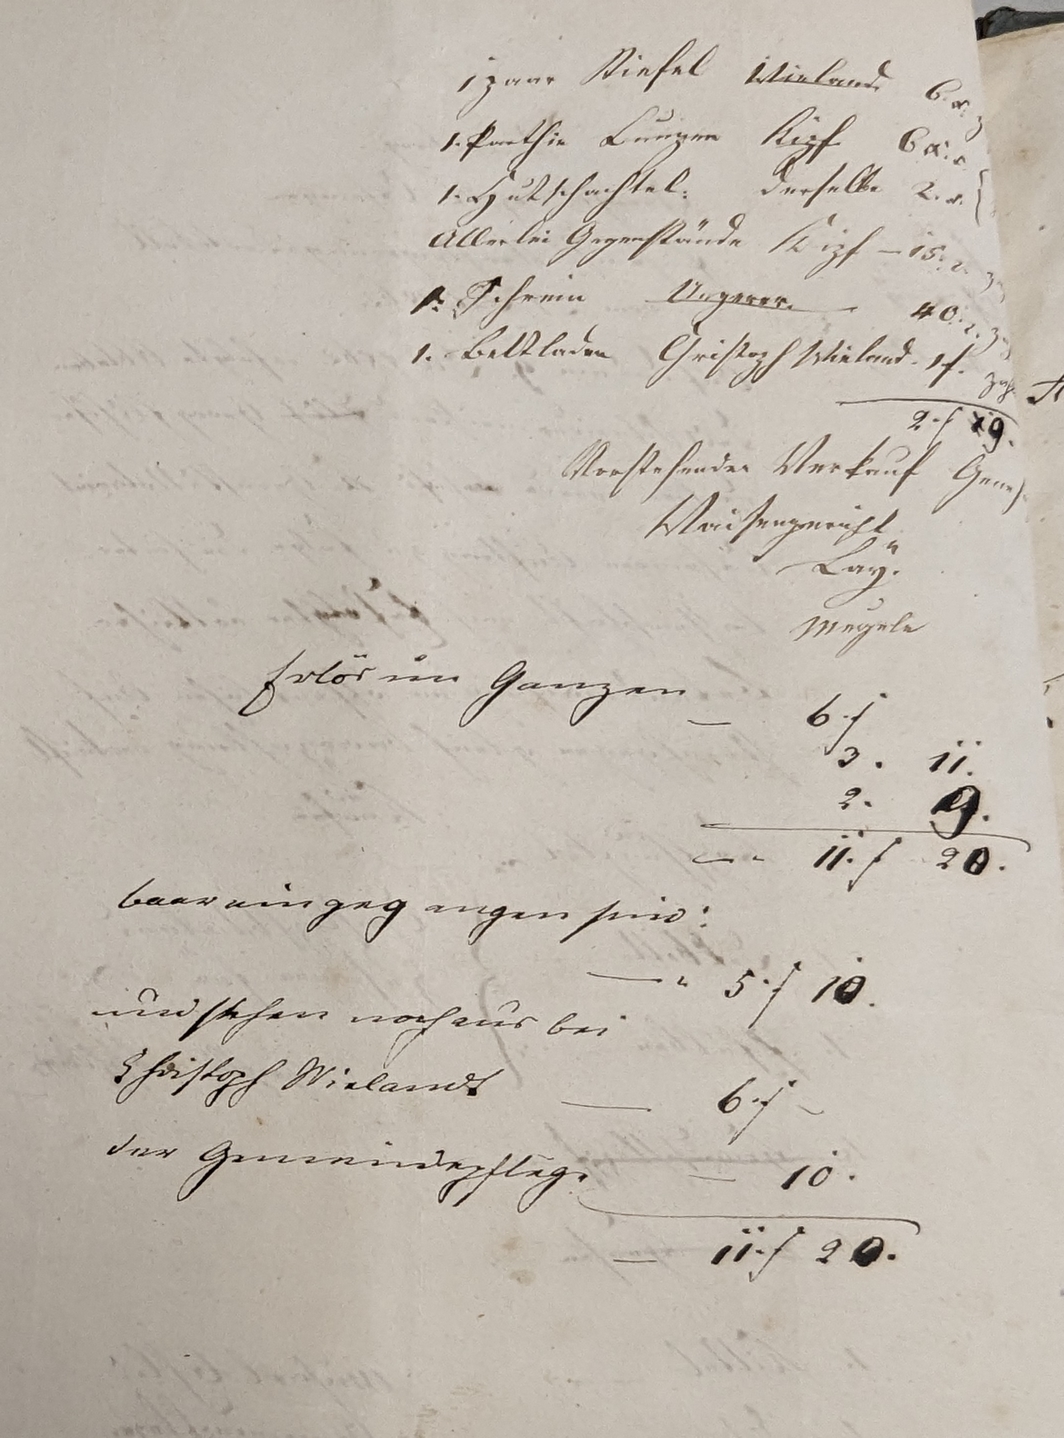 1 paar Stiefel Wieland 6 x.
1. Parthie Lumpen Kipf 6 x.
1. Hutschachtel. derselbe 2. x.
Allerlei Gegenstände Kipf — 15. x.
1. Schrein Ungerer 40. x.
1. Bettladen Christoph Wieland. 1 f.
2. f 9.
Vorstehenden Verkauf
Waisengericht
Lay.
Megele
Erlös im Ganzen — 6. f
3. 11.
2. 9.
11. f 20.
baar eingegangen sind:
— 5. f 10.
und stehen noch aus bei
Christoph Wielandt — 6. f –
der Gemeindepflege — 10.
— 11. f 20.